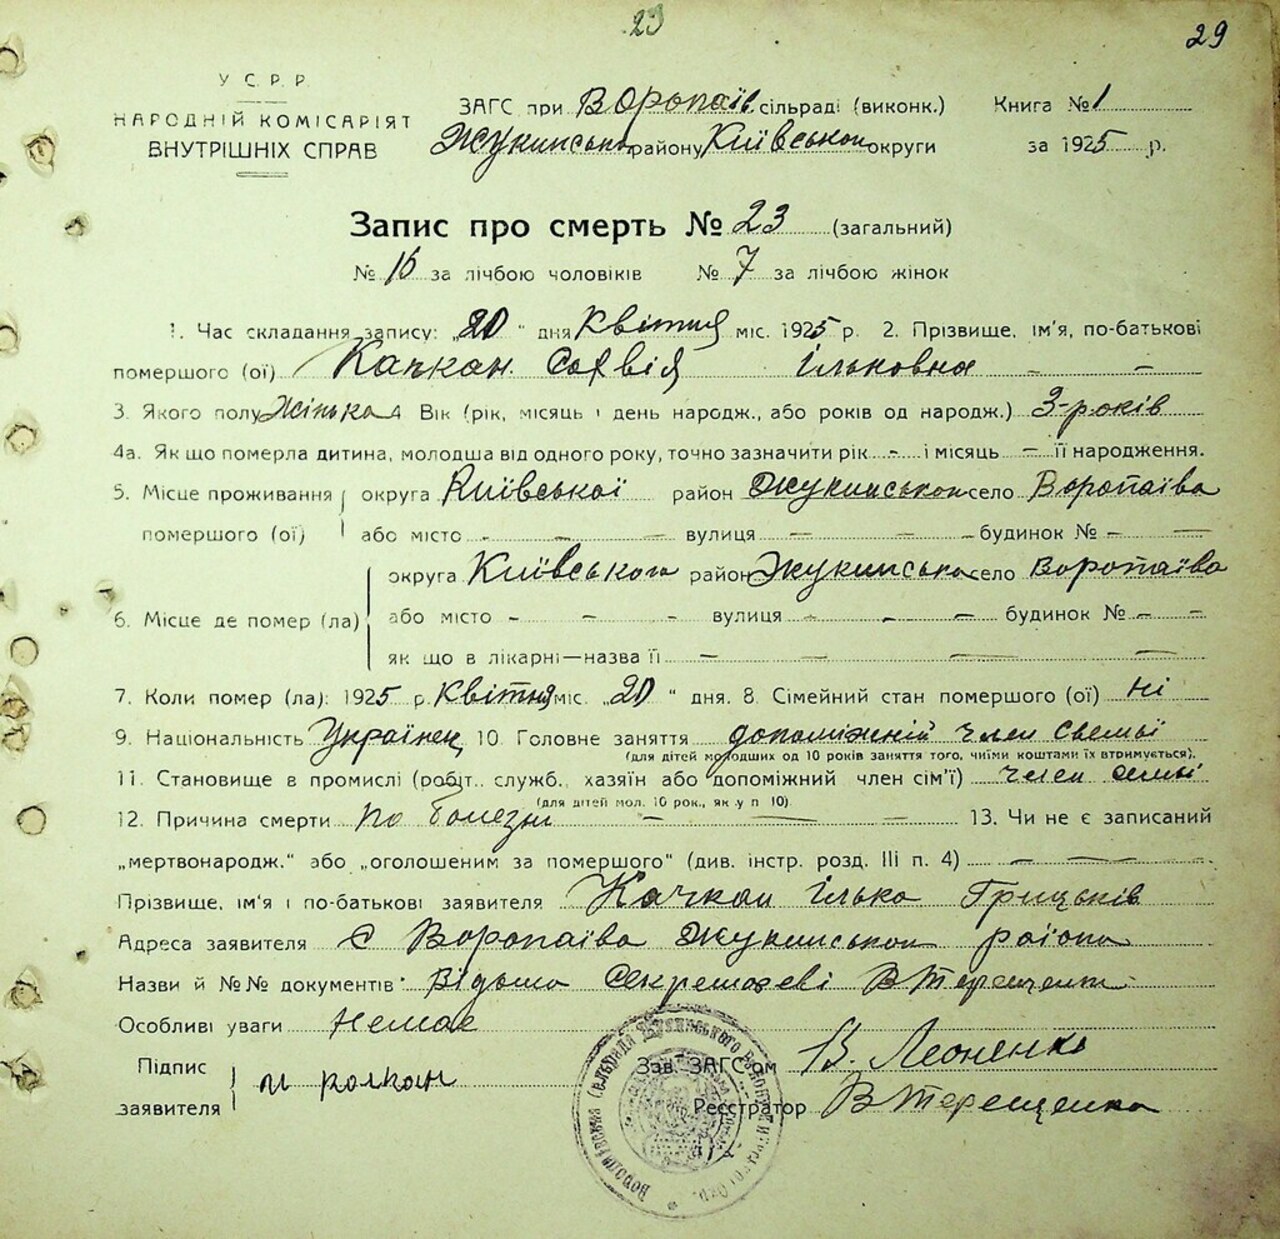 23
29
У С. Р. Р.
НАРОДНІЙ КОМІСАРІЯТ
ВНУТРІШНІХ СПРАВ
ЗАГС при Воропаїв. сільраді (виконк.) Книга № 1
Жукинського району Київської округи за 1925 р.
Запис про смерть № 23 (загальний)
№ 16 за лічбою чоловіків № 7 за лічбою жінок
1. Час складання запису: „20" дня Квітня міс. 1925 р. 2. Прізвище, ім'я, по-батькові
помершого (ої) Качкан Софвія Ільковна - -
3. Якого полу Жінька 4 Вік (рік, місяць і день народж., або років од народж.) 3-років
4а. Як що померла дитина, молодша від одного року, точно зазначити рік - і місяць - її народження.
5. Місце проживання округа Київської район Жукинськой село Воропаїва
помершого (ої) або місто - - - вулиця - - - будинок № - -
округа Київського район Жукинсько село Воропаїва
6. Місце де помер (ла) або місто - - - вулиця - - - будинок № - -
як що в лікарні—назва її - - - -
7. Коли помер (ла): 1925 р. Квітня міс. „20" дня. 8. Сімейний стан помершого (ої) ні
9. Національність Українец 10. Головне заняття допоміжній член Свемьї
(для дітей молодших од 10 років заняття того, чиїми коштами їх втримується).
11. Становище в промислі (робіт., служб., хазяїн або допоміжний член сім'ї) член семьї
(для дітей мол. 10 рок., як у п 10)
12. Причина смерти по болезні - - - 13. Чи не є записаний
„мертвонародж." або „оголошеним за помершого" (див. інстр. розд. III п. 4) - - -
Прізвище, ім'я і по-батькові заявителя Качкан Ілько Грицьків
Адреса заявителя С Воропаїва Жукинськои району
Назви й №№ документів Відомо Секретареві В Терещенко
Особливі уваги Немає
Підпис
заявителя
Зав. ЗАГС'ом В. Леоненко
Реєстратор В Терещенко